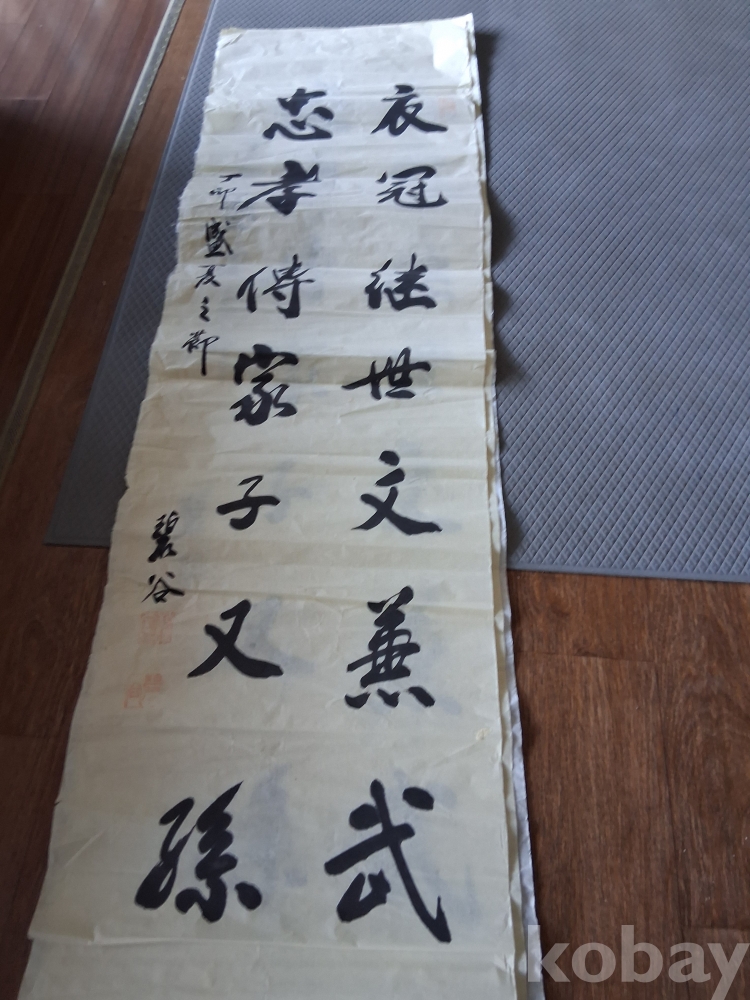 衣冠继世文兼武
忠孝傳家子又孫
丁卯盛夏之節
碧谷
kobay